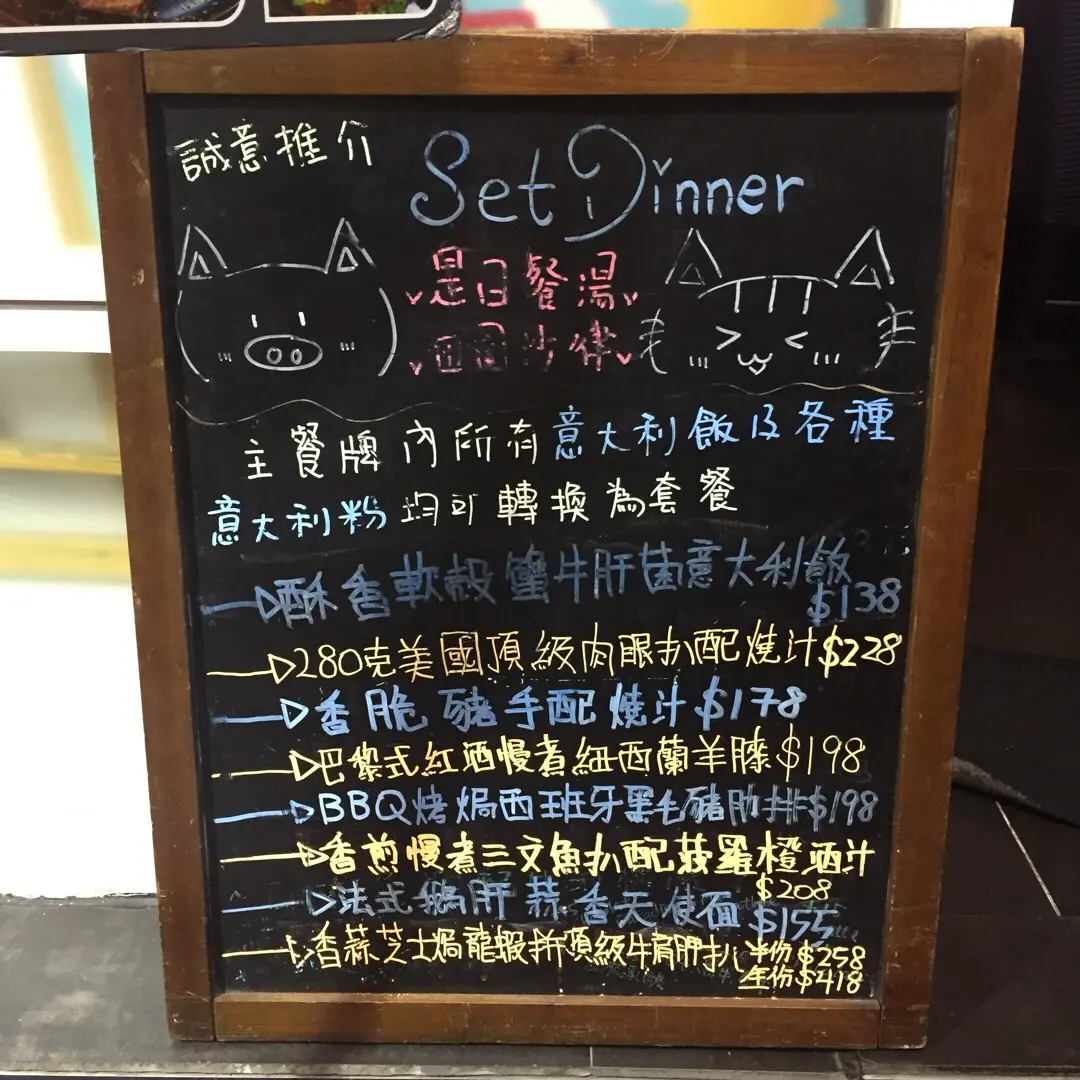 誠意推介
Set Dinner
是日餐湯
田園沙律
主餐牌內所有意大利飯及各種
意大利粉均可轉換為套餐
酥香軟殼蟹牛肝菌意大利飯
$138
280克美國頂級肉眼扒配燒汁$228
香脆豬手配燒汁$178
巴黎式紅酒慢煮紐西蘭羊膝$198
BBQ烤焗西班牙黑毛豬肋排$198
香煎慢煮三文魚扒配菠羅橙酒汁
$208
法式鵝肝蒜香天使面
$155
香蒜芝士焗龍蝦拼頂級牛肩胛扒 半份$258
$418